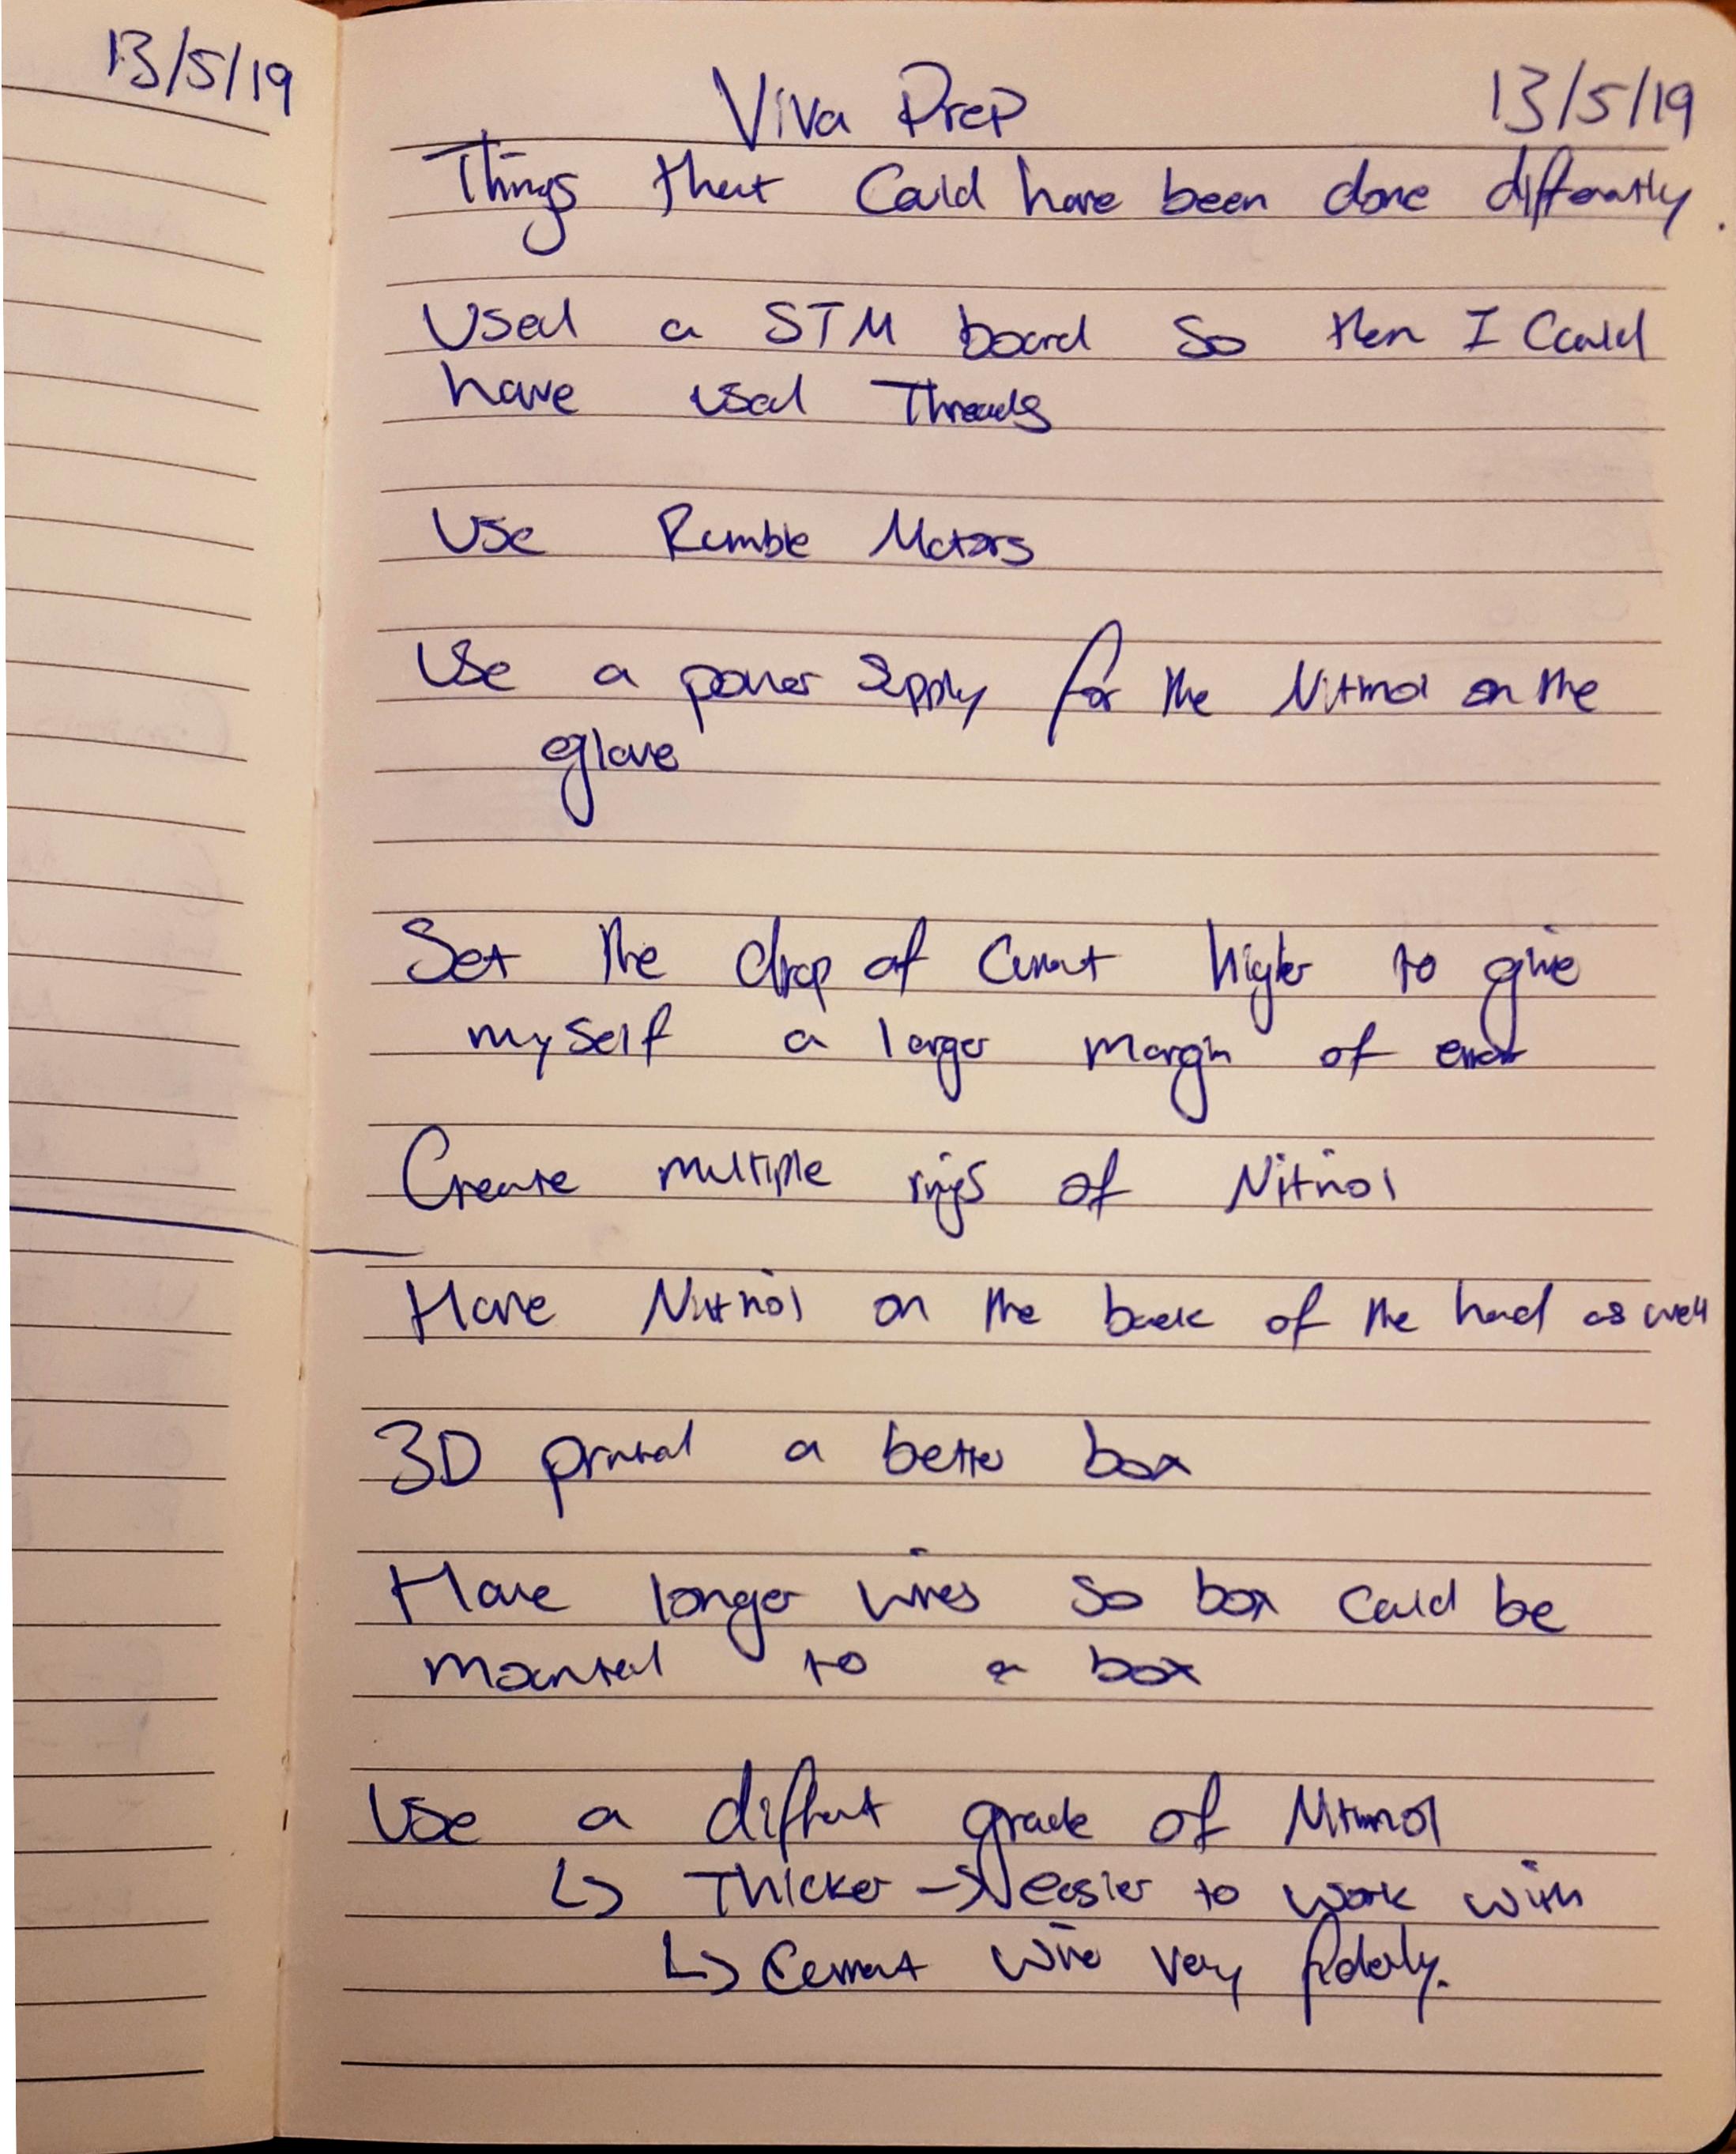 13/5/19
Viva Prep 13/5/19
Things that Could have been done differently.
Used a STM board so then I Could
have used Threads
Use Rumble Motors
Use a power Supply for the Nitinol on the
glove
Set the drop of Current higher to give
myself a larger margin of error
Create multiple rings of Nitinol
Have Nitinol on the back of the hand as well
3D printed a better box
Have longer wires so box could be
mounted to a box
Use a different grade of Nitinol
↳ Thicker → easier to work with
↳ Current wire very fiderly.